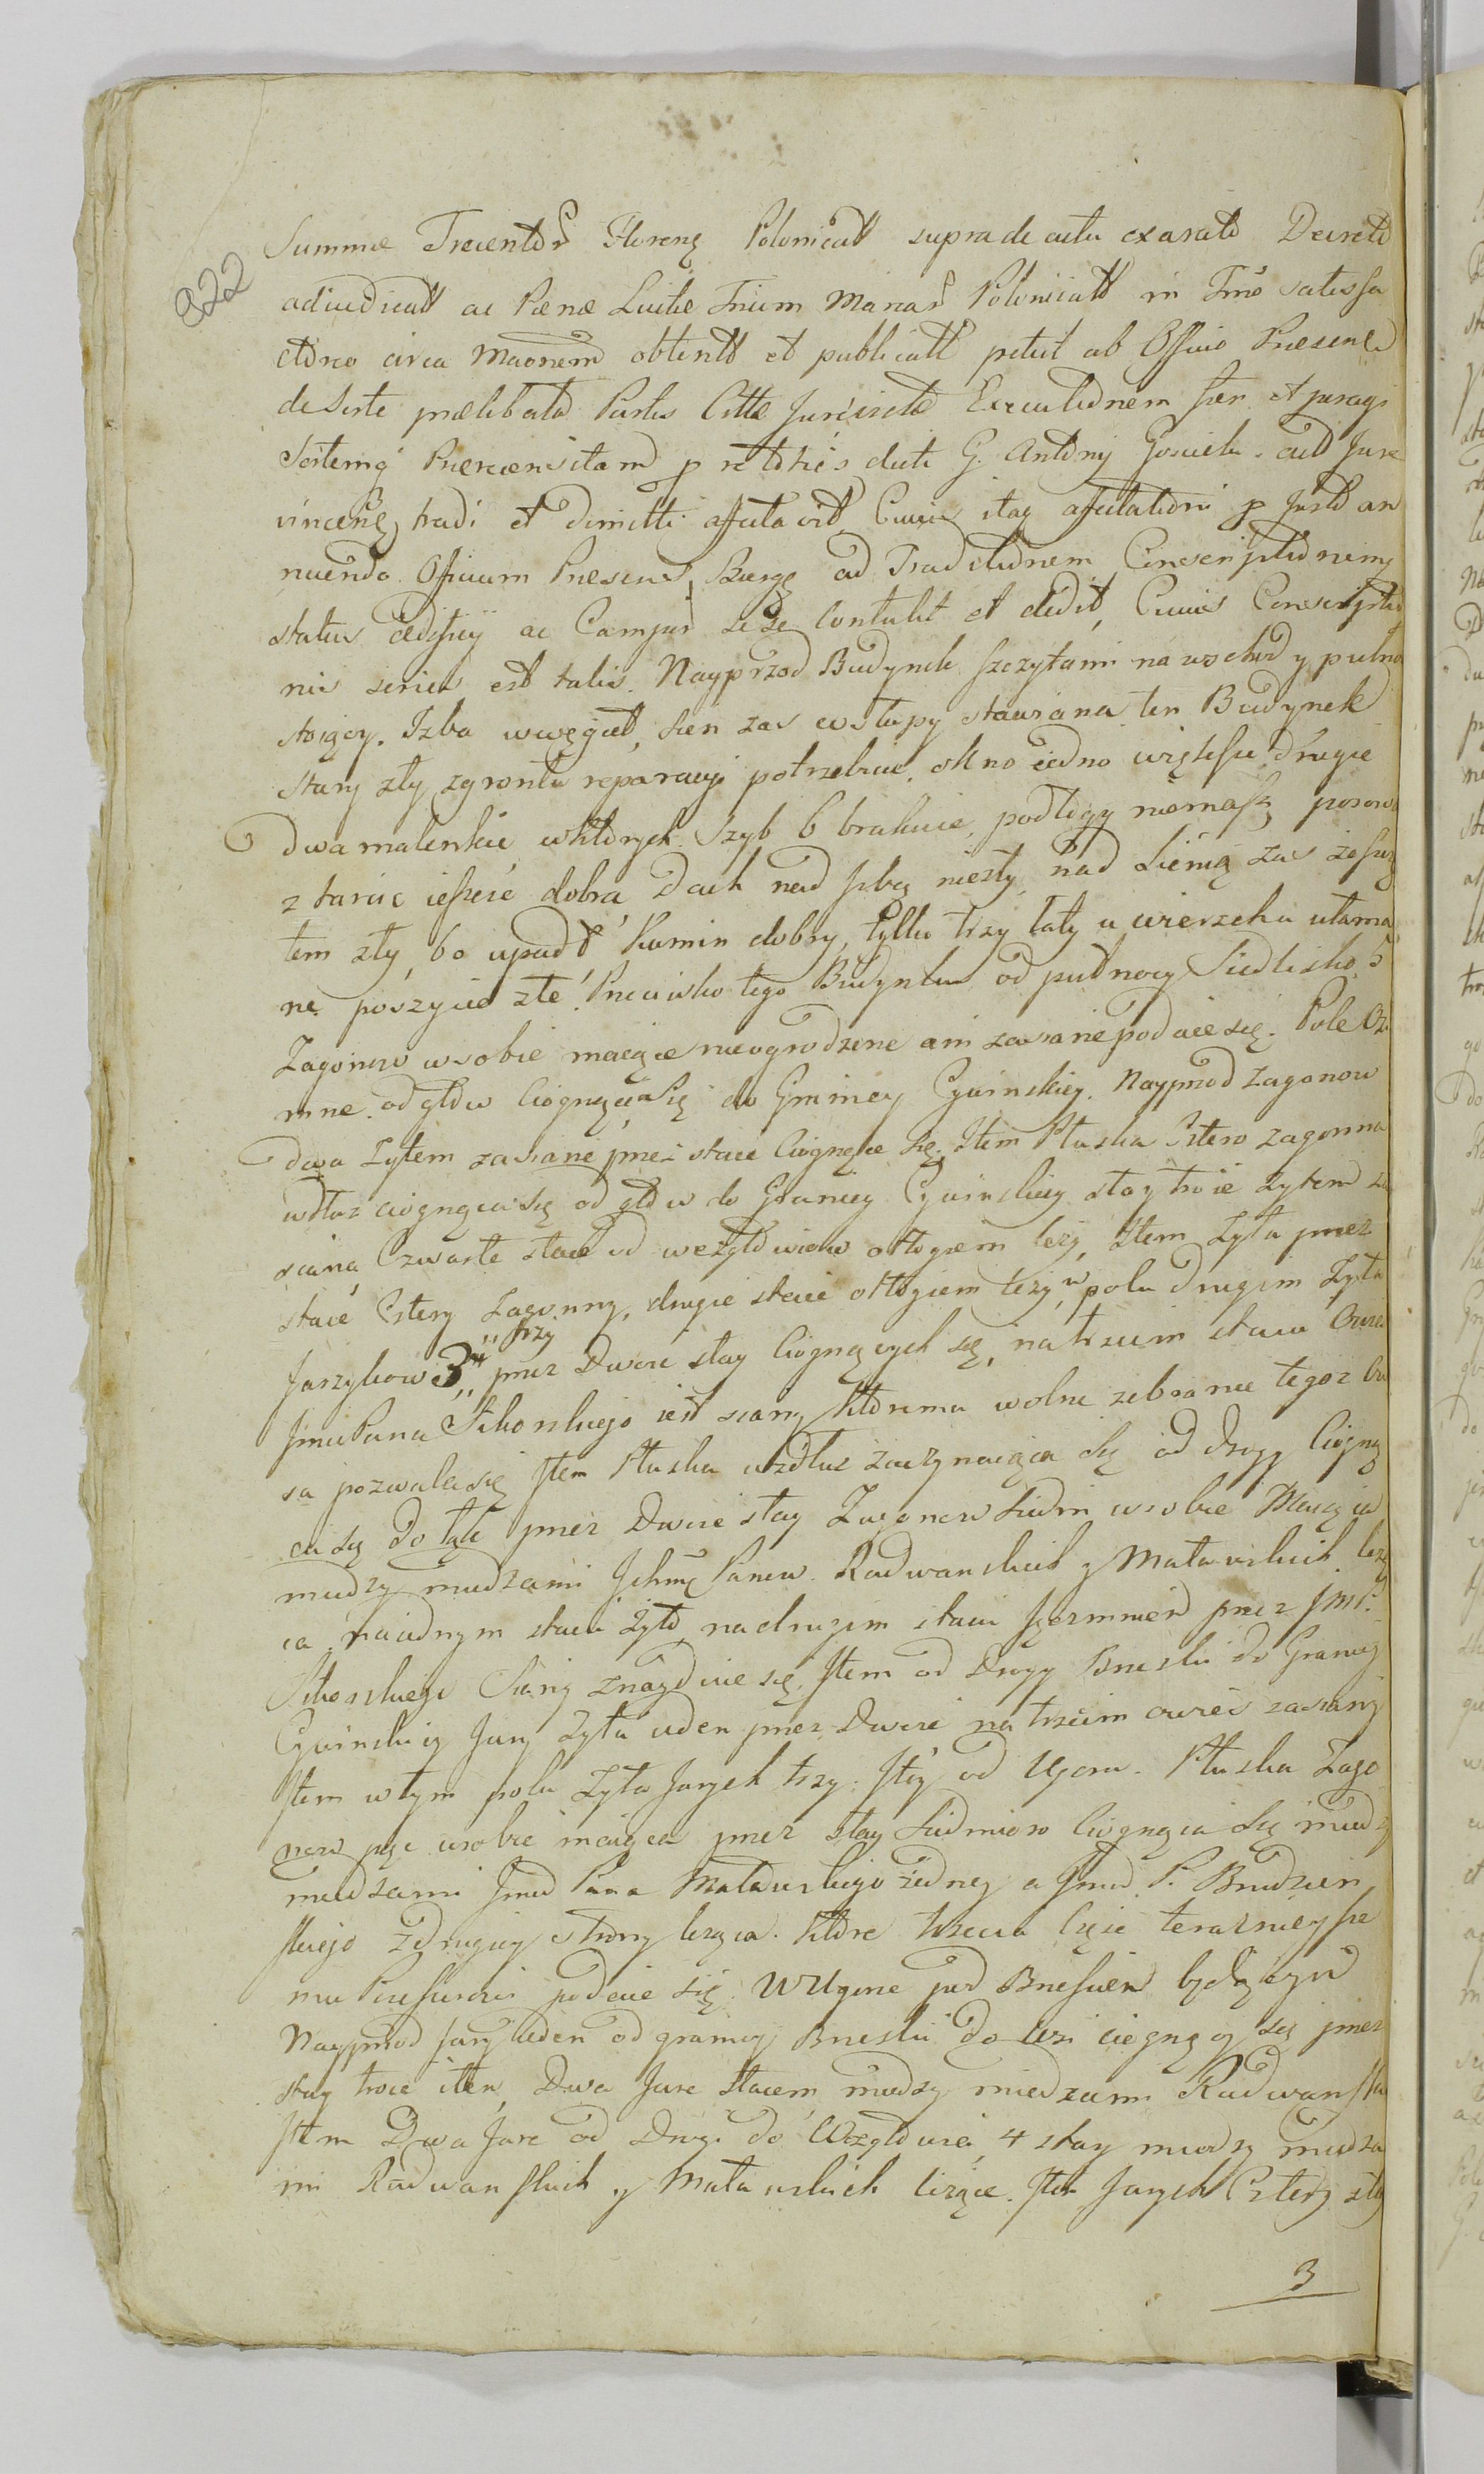 922
Summæ Trecentor Floreng Polonicall supra de actu exarato Decreto
adiudicatt ac Pænæ Luitæ Trium Marcar Polonicatt in Tnō satisfa
ctoreo circa maonem obtentt et publicatt petiit ab Officio Præsenti
de Sorte prælibata Partis Cittæ Juris recte Executionem fieri et peragi
Sortemq Præreconsitam p rectores dicti G. Antonij Goscicki
vinceng tradi et dimitti afectavit, Cuius itaq afectationi p Justo an
nuendo Officium Præsens Burgg ad Traditionem Conscriptionemq
status Ædificij ac Campor sese Contulit et dedit, Cuius Conscriptio
nis series est talis. Nayprzod Budynek szczytami na wschod y pułno
stoiący. Izba w węgieł, sien zas w słupy stawiana ten Budynek
stary zły zgrontu reparacyi potrzebuie. okno iedno większe drugie
Dwa malenkie w ktorych Szyb 6 brakuie, podłogy niemasz, posowa
z tarcic ieszcze dobra Dach nad Izbą niezły, nad Sienią zas ze szczy
tem zły, bo upadł Komin dobry, tylko trzy łaty u wierzchu ułama
ne poszycie złe. Przeciwko tego Budynku od pułnocy Siedlisko 5
Zagonow w sobie maiące nieogrodzone ani zasiane podaie się. Pole Ozi
mne od głow Ciognące Się do Granicy Cywinskiey. Nayprzod Zagonow
dwa Zytem zasiane przez staie Ciognące się. Item Płuska Cztero zagonna
wdłuz ciognąca się od głow do Granicy Cywinskiey stay troie Zytem za
siana, Czwarte staie od wezgłowiow odłogiem lezy, Item Zyta przez
staie Cztery Zagonny, drugie staie odłogiem lezy, w polu drugim Zyta
Jarzykow 3 „trzy przez Dwoie stay Ciognących się, na trzecim staiu Owies
Jmci Pana Sikorskiego iest siany ktoremu wolne zebranie tegoz Ow
sa pozwala się Item Płuska wzdłuz zaczynaiąca Się od drogy Ciogną
ca się do łąk przez Dwoie stay Zagonow siedm w sobie Maiąca
miedzy miedzami Jchmc Panow Radwanskich y Małowskich lezą
ca, na iednym staiu Zyto, na drugim staiu Jęczmien przez JmP.
Sikorskiego Siany znayduie się, Item od Drogy Brzeski do Granicy
Cywinskiey Jary Zyta ieden przez Dwoie na trzecim owies zasiany
Item w tym polu Zyta Jarych trzy. Item od Ugoru Płuska Zago
now pęć w sobie maiąca przez stay Siedmioro Ciognąca Się miedzy
miedzami Jmci Pana Małowskiego iedney a Jmci P. Brudzien
skiego z drugiey strony lezaca. ktore trzecia Część terazniey sze
mu Possesorowi podaie się. W Ugorze pod Brzesciem będącym
Nayprzod Jary ieden od granicy Brzeski do wsi ciegnący się przez
stay troie item Dwa Jare staiem miedzy miedzami Radwanski
Item Dwa Jare od Drogi do Wezgłowia, 4 stay miedzy miedza
mi Radwanskich y Małowskich lezące. Item Jarych Cztery sta
3